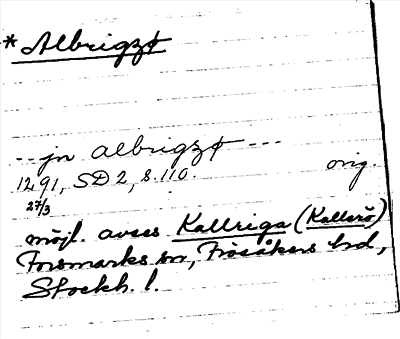 * Albrigzø
-- jn albrigzø ---
1291, SD 2, s. 110. orig.
27/3
möjl. avses Kallriga (Kallerö)
Forsmarks sn, Frösåkers hd,
Stockh. l.